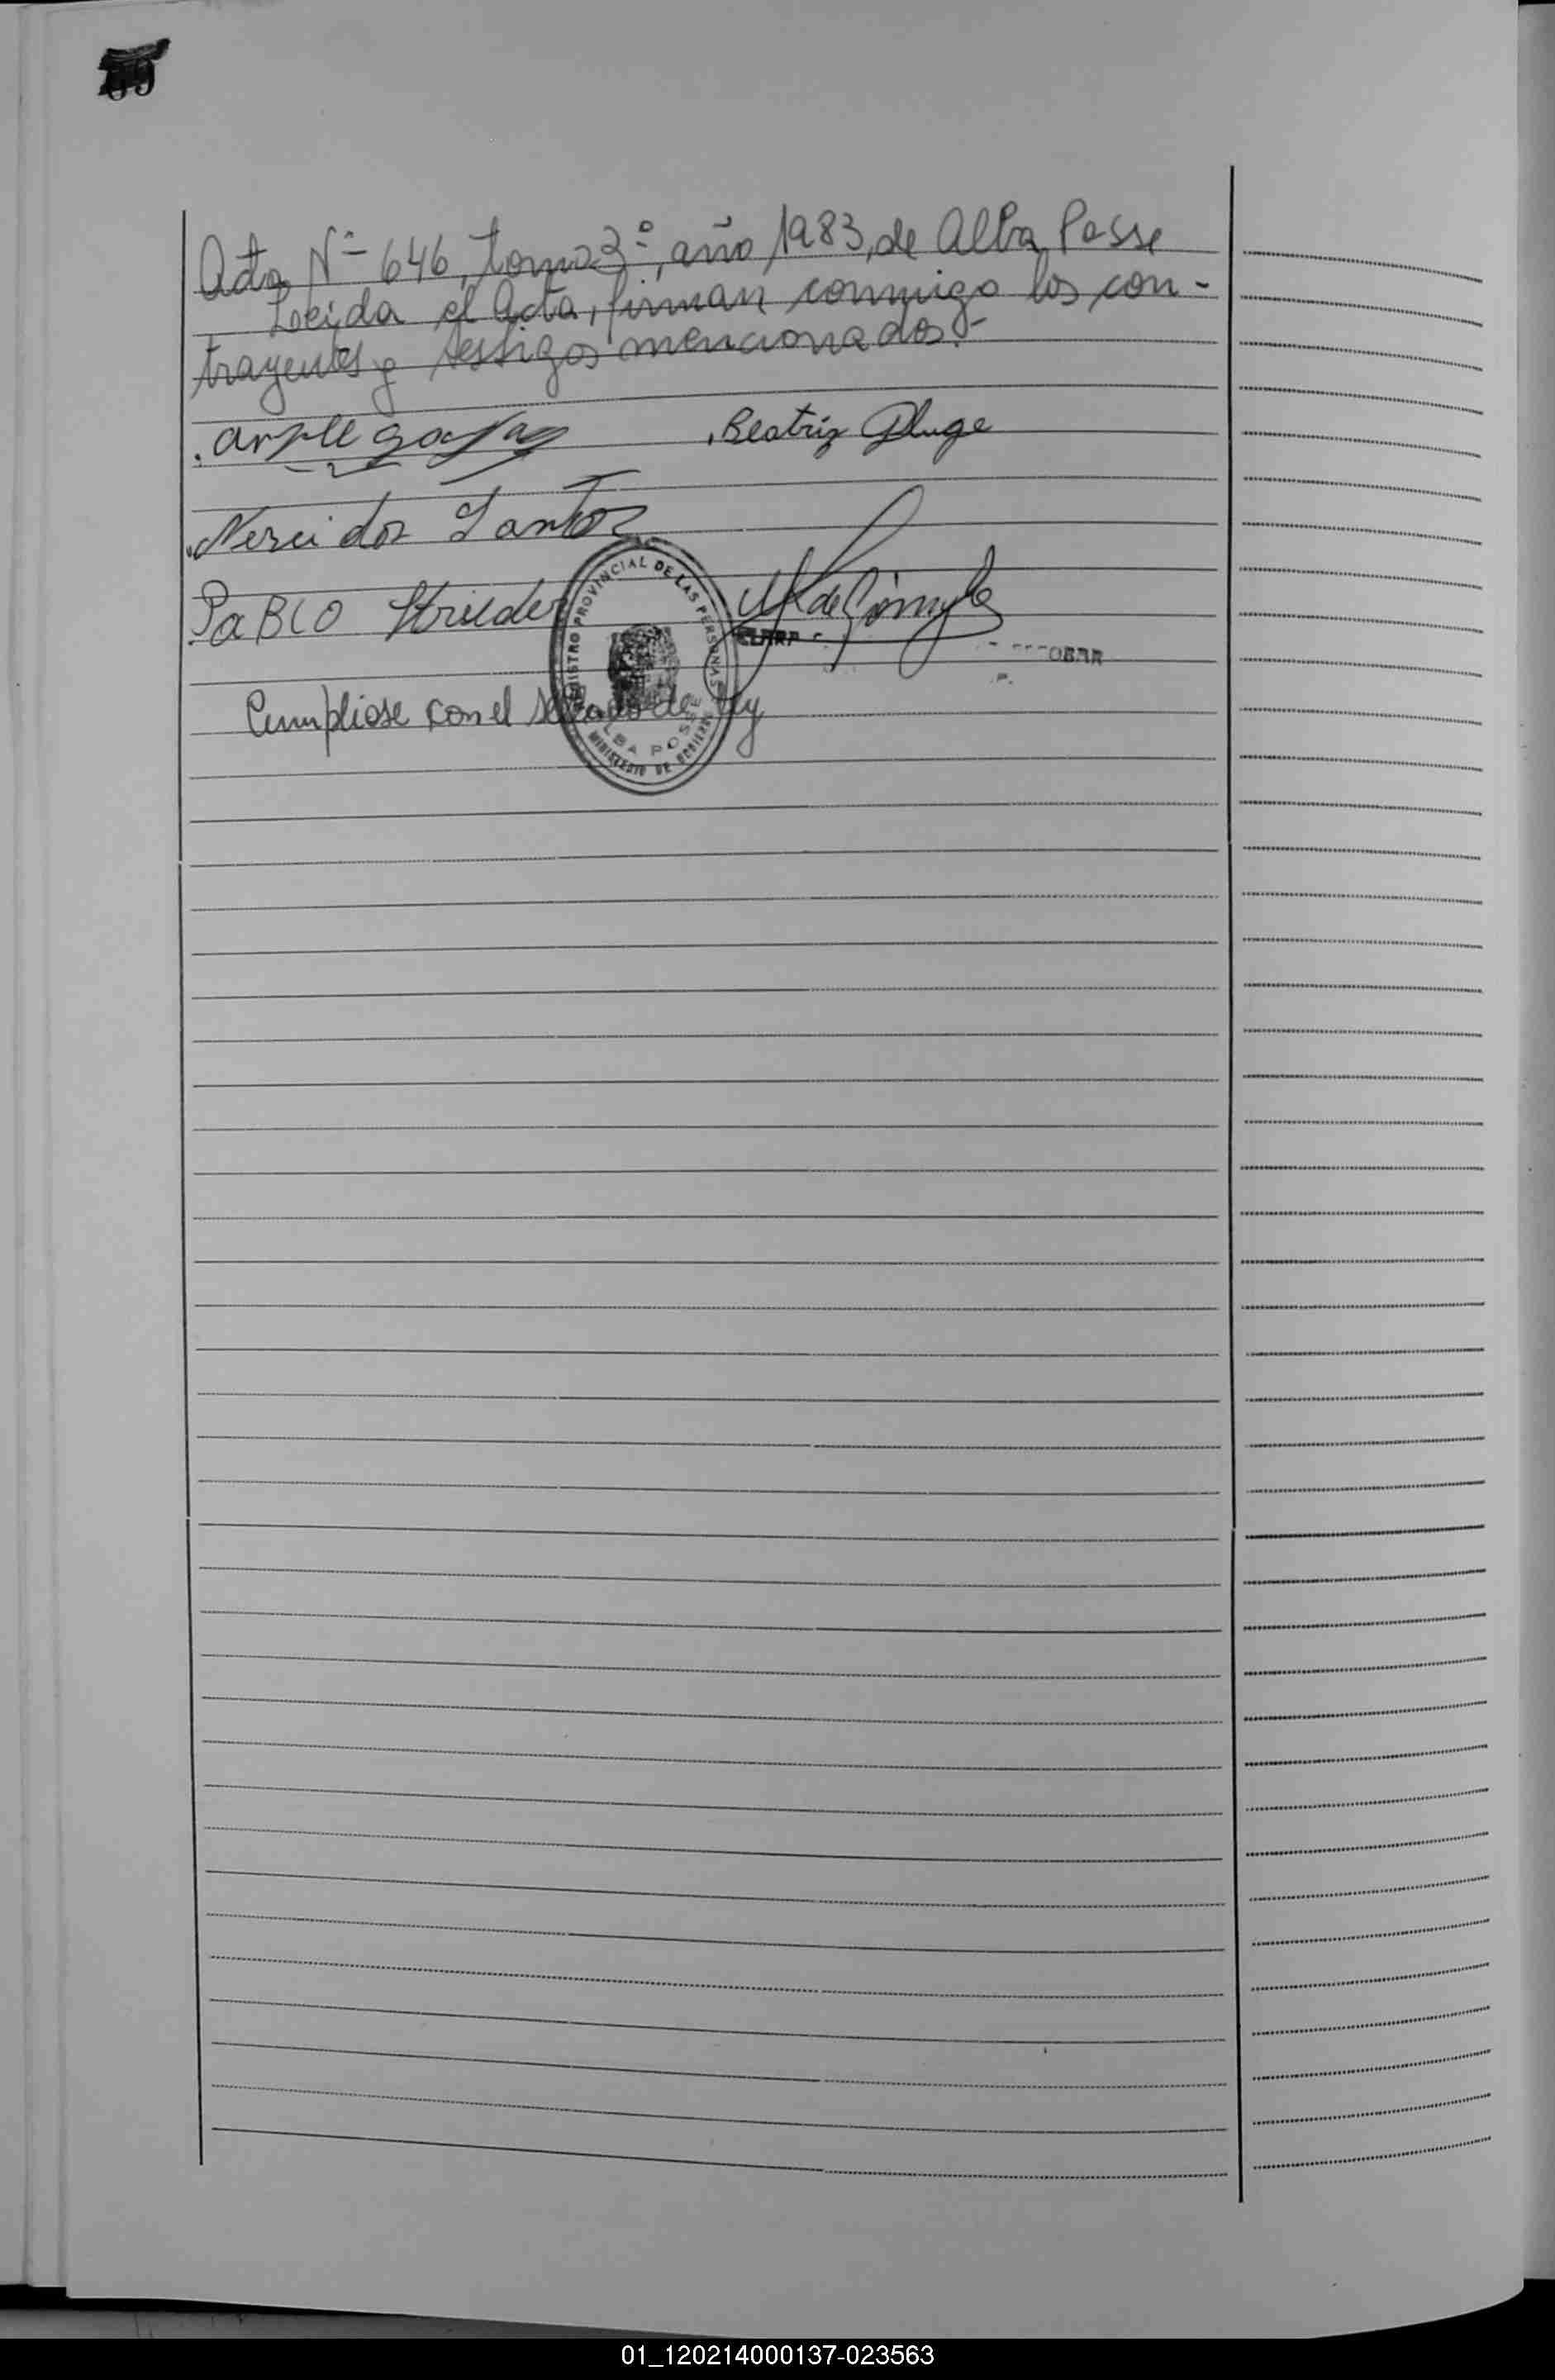 Acta Nº 646, tomo 3º, año 1983, de Alba Posse
Leida el Acta, firman conmigo los con-
trayentes y testigos mencionados.-
Beatriz Pluge
Nerci dos Santos
PaBLO Strieder
REGISTRO PROVINCIAL DE LAS PERSONAS
ALBA POSSE
MINISTERIO DE GOBIERNO
Cumpliose con el sellado de ley
01_120214000137-023563